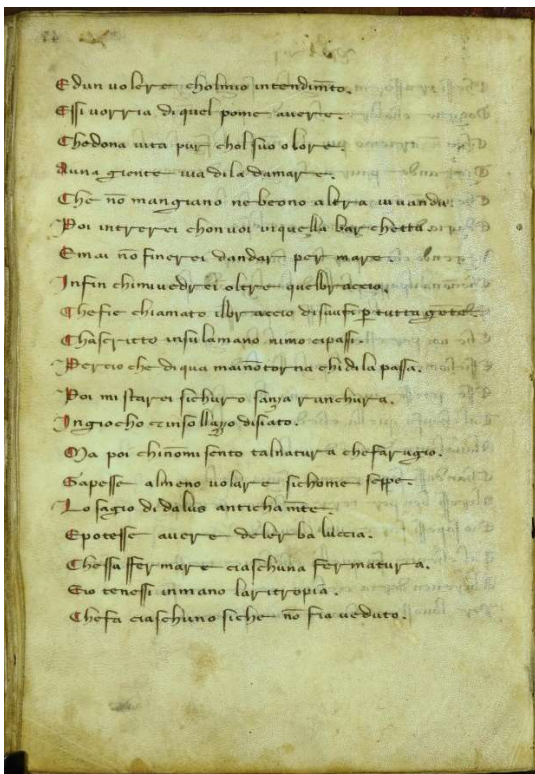 Edun uolere cholmio intendim̃to.
Essi uorria di quel pome auere.
Chedona uita pur chol suo olore.
Auna giente uia di la damare.
Che nõ mangiano ne beono altra uiuanda.
Poi intrerei chon uoi in quella barchetta.
Emai nõ finerei dandar per mare.
Infin chiuuedrei oltre quel braccio.
Chefie chiamato ilbraccio disaufi p tutta gente.
Chascritto insulamano nimo cipassi.
Percio che di qua mainõ torna chi di la passa.
Poi mi starei sichuro sanza ranchura.
In giocho et insollazzo disiato.
Ma poi chinõmi sento talnatura chefaragio.
Sapesse almeno uolare sichome seppe.
Lo sagio didalus antichamẽte.
Epotesse auere delerba luccia.
Chessa ffermare ciaschuna fermatura.
Eio tenessi inmano laritropia.
Chefa ciaschuno siche nõ fia ueduto.